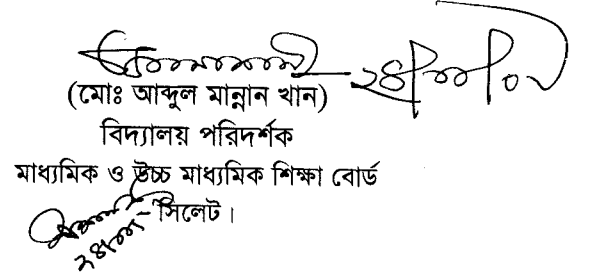 (মোঃ আব্দুল মান্নান খান)
বিদ্যালয় পরিদর্শক
মাধ্যমিক ও উচ্চ মাধ্যমিক শিক্ষা বোর্ড
সিলেট।